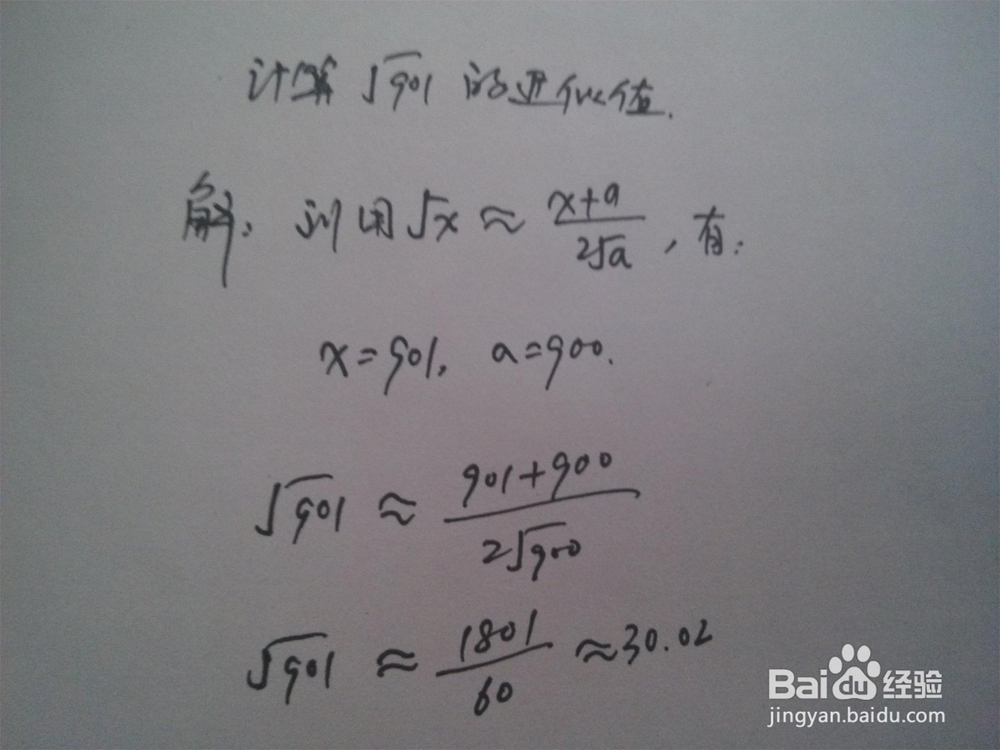 计算 √901 的近似值.
解: 利用√x ≈ (x+a)/(2√a), 有:
x=901, a=900.
√901 ≈ (901+900)/(2√900)
√901 ≈ 1801/60 ≈30.02
Baidu经验
jingyan.baidu.com